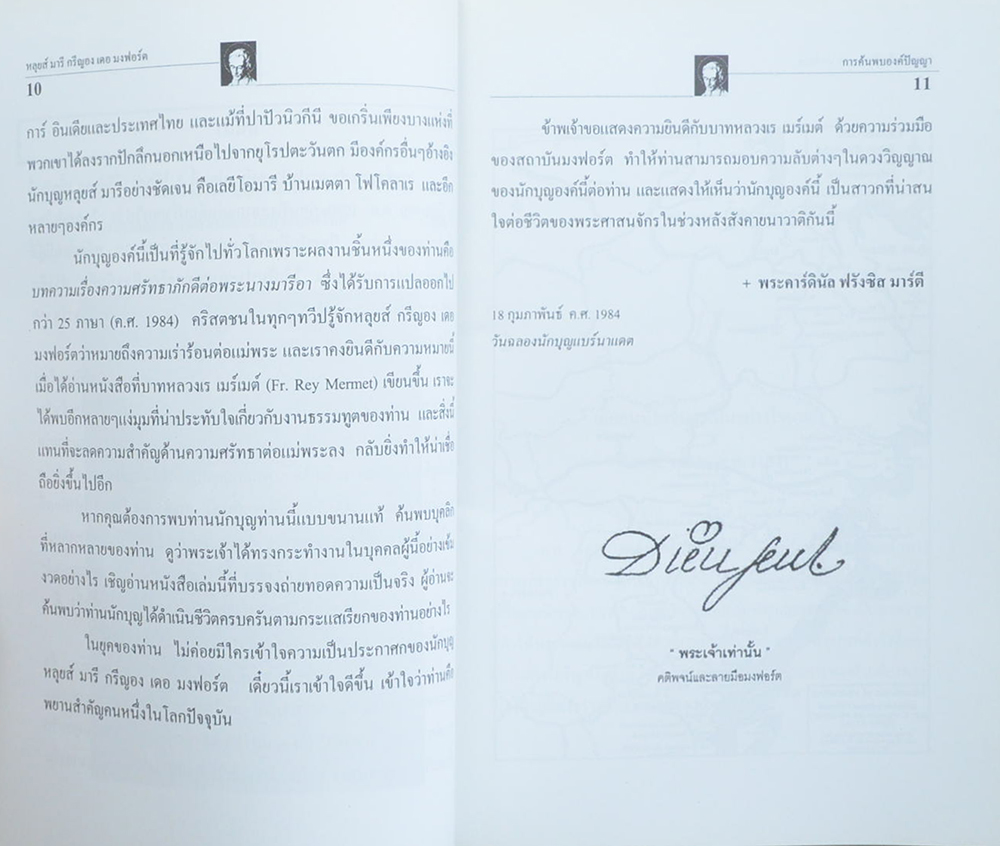 หลุยส์ มารี กรีญอง เดอ มงฟอร์ต
10
การ์ อินเดียและประเทศไทย และแม้ที่ปาปัวนิวกีนี ขอเกริ่นเพียงบางแห่งที่
พวกเขาได้ลงรากปักลึกนอกเหนือไปจากยุโรปตะวันตก มีองค์กรอื่นๆอ้างอิง
นักบุญหลุยส์ มารีอย่างชัดเจน คือเลยีโอมารี บ้านเมตตา โฟโคลาเร และอีก
หลายๆองค์กร
นักบุญองค์นี้เป็นที่รู้จักไปทั่วโลกเพราะผลงานชิ้นหนึ่งของท่านคือ
บทความเรื่องความศรัทธาภักดีต่อพระนางมารีอา ซึ่งได้รับการแปลออกไป
กว่า 25 ภาษา (ค.ศ. 1984) คริสตชนในทุกๆทวีปรู้จักหลุยส์ กรีญอง เดอ
มงฟอร์ตว่าหมายถึงความเร่าร้อนต่อแม่พระ และเราคงยินดีกับความหมายนี้
เมื่อได้อ่านหนังสือที่บาทหลวงเร เมร์เมต์ (Fr. Rey Mermet) เขียนขึ้น เราจะ
ได้พบอีกหลายๆแง่มุมที่น่าประทับใจเกี่ยวกับงานธรรมทูตของท่าน และสิ่งนี้
แทนที่จะลดความสำคัญด้านความศรัทธาต่อแม่พระลง กลับยิ่งทำให้น่าเชื่อ
ถือยิ่งขึ้นไปอีก
หากคุณต้องการพบท่านนักบุญท่านนี้แบบขนานแท้ ค้นพบบุคลิก
ที่หลากหลายของท่าน ดูว่าพระเจ้าได้ทรงกระทำงานในบุคคลผู้นี้อย่างเข้ม
งวดอย่างไร เชิญอ่านหนังสือเล่มนี้ที่บรรจงถ่ายทอดความเป็นจริง ผู้อ่านจะ
ค้นพบว่าท่านนักบุญได้ดำเนินชีวิตครบครันตามกระแสเรียกของท่านอย่างไร
ในยุคของท่าน ไม่ค่อยมีใครเข้าใจความเป็นประกาศกของนักบุญ
หลุยส์ มารี กรีญอง เดอ มงฟอร์ต เดี๋ยวนี้เราเข้าใจดีขึ้น เข้าใจว่าท่านคือ
พยานสำคัญคนหนึ่งในโลกปัจจุบัน
การค้นพบองค์ปัญญา
11
ข้าพเจ้าขอแสดงความยินดีกับบาทหลวงเร เมร์เมต์ ด้วยความร่วมมือ
ของสถาบันมงฟอร์ต ทำให้ท่านสามารถมอบความลับต่างๆในดวงวิญญาณ
ของนักบุญองค์นี้ต่อท่าน และแสดงให้เห็นว่านักบุญองค์นี้ เป็นสาวกที่น่าสน
ใจต่อชีวิตของพระศาสนจักรในช่วงหลังสังคายนาวาติกันนี้
+ พระคาร์ดินัล ฟรังซิส มาร์ตี
18 กุมภาพันธ์ ค.ศ. 1984
วันฉลองนักบุญแบร์นาแดต
Dieu seul.
" พระเจ้าเท่านั้น "
คติพจน์และลายมือมงฟอร์ต